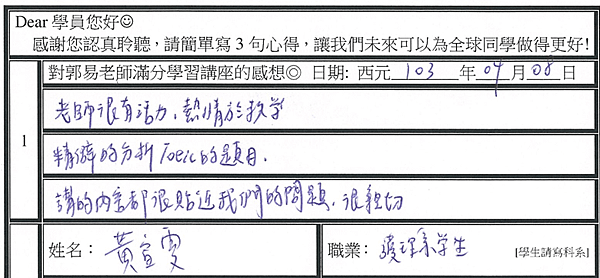 Dear 學員您好☺
感謝您認真聆聽，請簡單寫 3 句心得，讓我們未來可以為全球同學做得更好!
對郭易老師滿分學習講座的感想◎ 日期: 西元 103 年 04 月 08 日
1
老師很有活力，熱情於教学
精僻的分析Toeic的題目。
講的內容都很貼近我們的問題，很親切
姓名： 黃宣雯 職業： 護理系学生 [學生請寫科系]